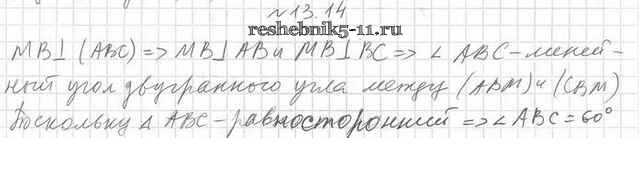 №13.14
reshebnik5-11.ru
MB⊥(ABC) => MB⊥AB и MB⊥BC => ∠ABC - линей-
ный угол двугранного угла между (ABM) и (CBM)
Поскольку △ABC - равносторонний => ∠ABC = 60°